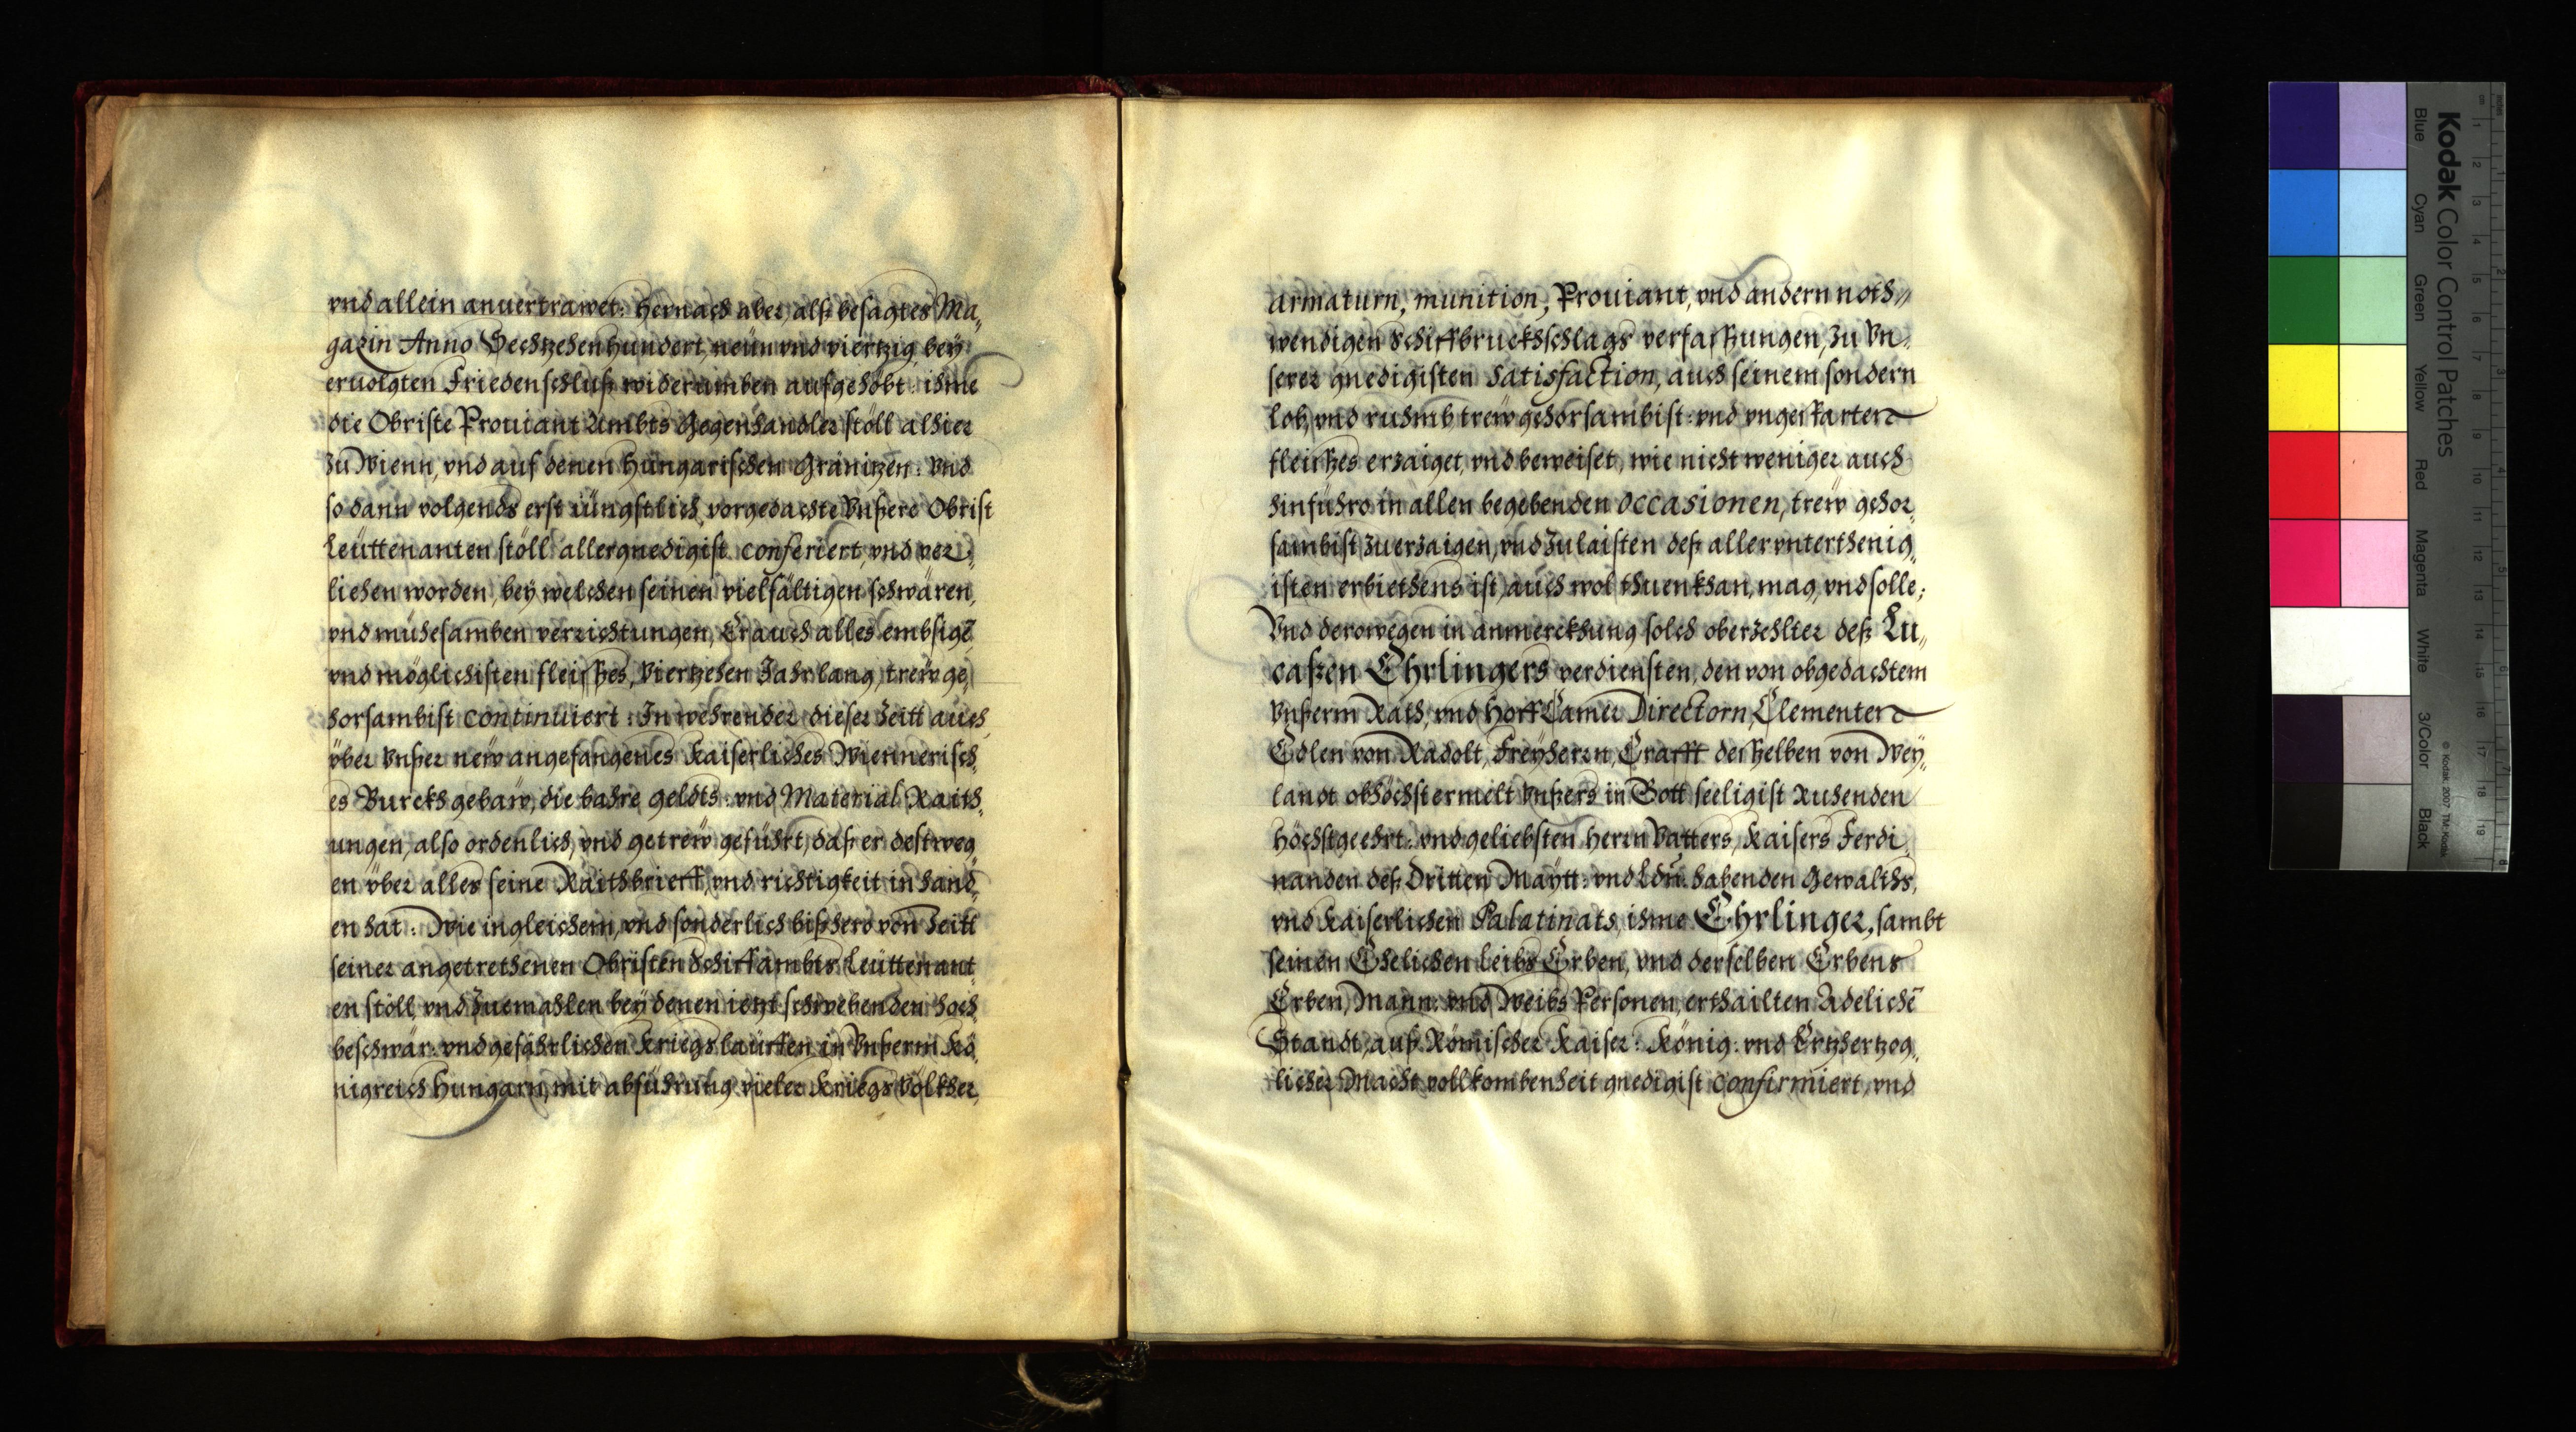 vnd allein anuertrawet: hernach aber, alß besagtes Ma„
gazin Anno Sechzehenhundert, neün vnd viertzig, bey
eruolgten Friedenschluß widerumben aufgehöbt: ihme
die Obriste Prouiant Ambts Gegenhandler stöll alhier
zu Wienn, vnd auf denen Hungarischen Gränitzen: Vnd
so dann volgends erst iüngstlich, vorgedachte Vnßere Obrist
Leüttenanten stöll allergnedigist conferiert, vnd ver„
liehen worden, bey welchen seinen vielfältigen schwären,
vnd mühesamben verrichtungen, Er auch alles embsigē
vnd möglichisten fleisßes, Viertzehen Jahr lang, trew ge„
horsambist continuiert: In wehrender dieser Zeitt auch
über Vnßer new angefangenes Kaiserliches Wiennerisch„
es Burckhgebäw, die bahre geldts: vnd Material Raith„
ungen, also ordenlich, vnd getrew geführt, daß er deßtweg„
en über alles seine Raithbrieff, vnd richtigkeit in hand„
en hat: Wie ingleichem, vnd sonderlich bißhero von Zeitt
seiner angetrethenen Obristen Schiffambts Leüttenant„
en stöll, vnd Zuemahlen bey denen ietzt schwebenden hoch
beschwär: vnd gefährlichen Kriegsläüffen in Vnßerm Kö„
nigreich Hungarn, mit abführung vieler Kriegs Völkher,
armaturn, munition, Prouiant, vnd andern noth„
wendigen Schiffbruckhschlags verfasßungen, zu Vn„
serer gnedigisten Satisfaction, auch seinem sondern
lob, vnd ruhmb trew gehorsambist: vnd vngesparten
fleisßes erzaiget, vnd beweiset, wie nicht weniger auch
hinführo in allen begebenden occasionen, trew gehor„
sambist zuerzaigen, vnd zulaisten deß allervnterthenig„
isten erbiethens ist, auch wol thuen khan, mag, vnd solle;
Vnd derowegen in anmerckhung solch oberzehlter deß Lu„
caßen Ehrlingers verdiensten, den von obgedachtem
Vnßerm Rath, vnd Hoff Camer Directorn, Clementen
Edlen von Radolt, Freyherrn, Crafft desßelben von Wey„
landt obhöchsternelt Vnßers in Gott seeligist Ruhenden
höchstgeehrt: vnd geliebsten herrn Vatters, Kaisers Ferdi„
nanden deß Dritten Maytt: vnd Ldn. habenden Gewalths,
vnd Kaiserlichen Palatinats, ihme Ehrlinger, sambt
seinen Ehelichen Leibs Erben, vnd derselben Erbens
Erben, Mann: vnd Weibs Personen, erthailten Adelichē
Standt, auß Römischer Kaiser: König: vnd Ertzhertzog„
licher Macht vollkombenheit gnedigist confirmiert, vnd
Kodak Color Control Patches
Blue
Cyan
Green
Yellow
Red
Magenta
White
3/Color
Black